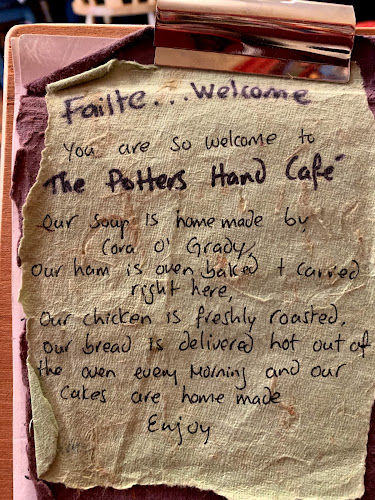 Failte...Welcome
You are so welcome to
The Potters Hand Café
Our soup is home made by
Cora O' Grady,
Our ham is oven baked + carved
right here,
Our chicken is freshly roasted.
Our bread is delivered hot out of
the oven every Morning and our
Cakes are home made
Enjoy